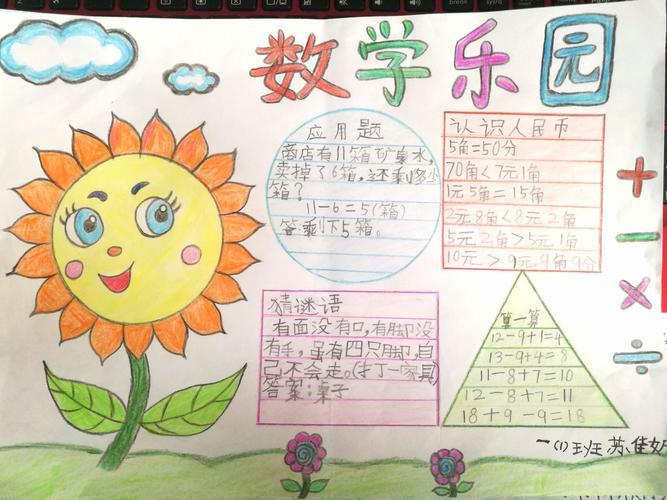 数学乐园
应用题
商店有11箱矿泉水,
卖掉了6箱,还剩多少
箱?
11-6=5(箱)
答剩下5箱。
认识人民币
5角=50分
70角<7元1角
1元5角=15角
2元8角<8元2角
5元2角>5元1角
10元>9元9角9分
+
-
×
÷
猜谜语
有面没有口,有脚没
有手,虽有四只脚,自
己不会走。(打一家具)
答案:桌子
算一算
12-9+1=4
13-9+4=8
11-8+7=10
12-8+7=11
18+9-9=18
一(1)班 苏佳